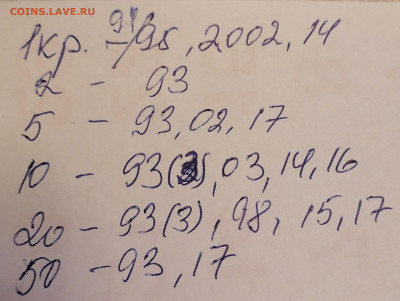 COINS.LAVE.RU
1кр. – 94/95, 2002, 14
2 – 93
5 – 93, 02, 17
10 – 93(3), 03, 14, 16
20 – 93(3), 98, 15, 17
50 – 93, 17